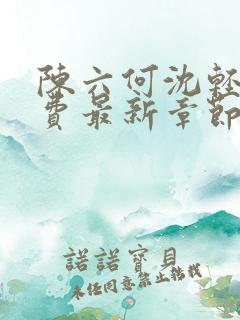 陈六何沈轻
费最新章節
諾諾寶貝
未经同意禁止转载